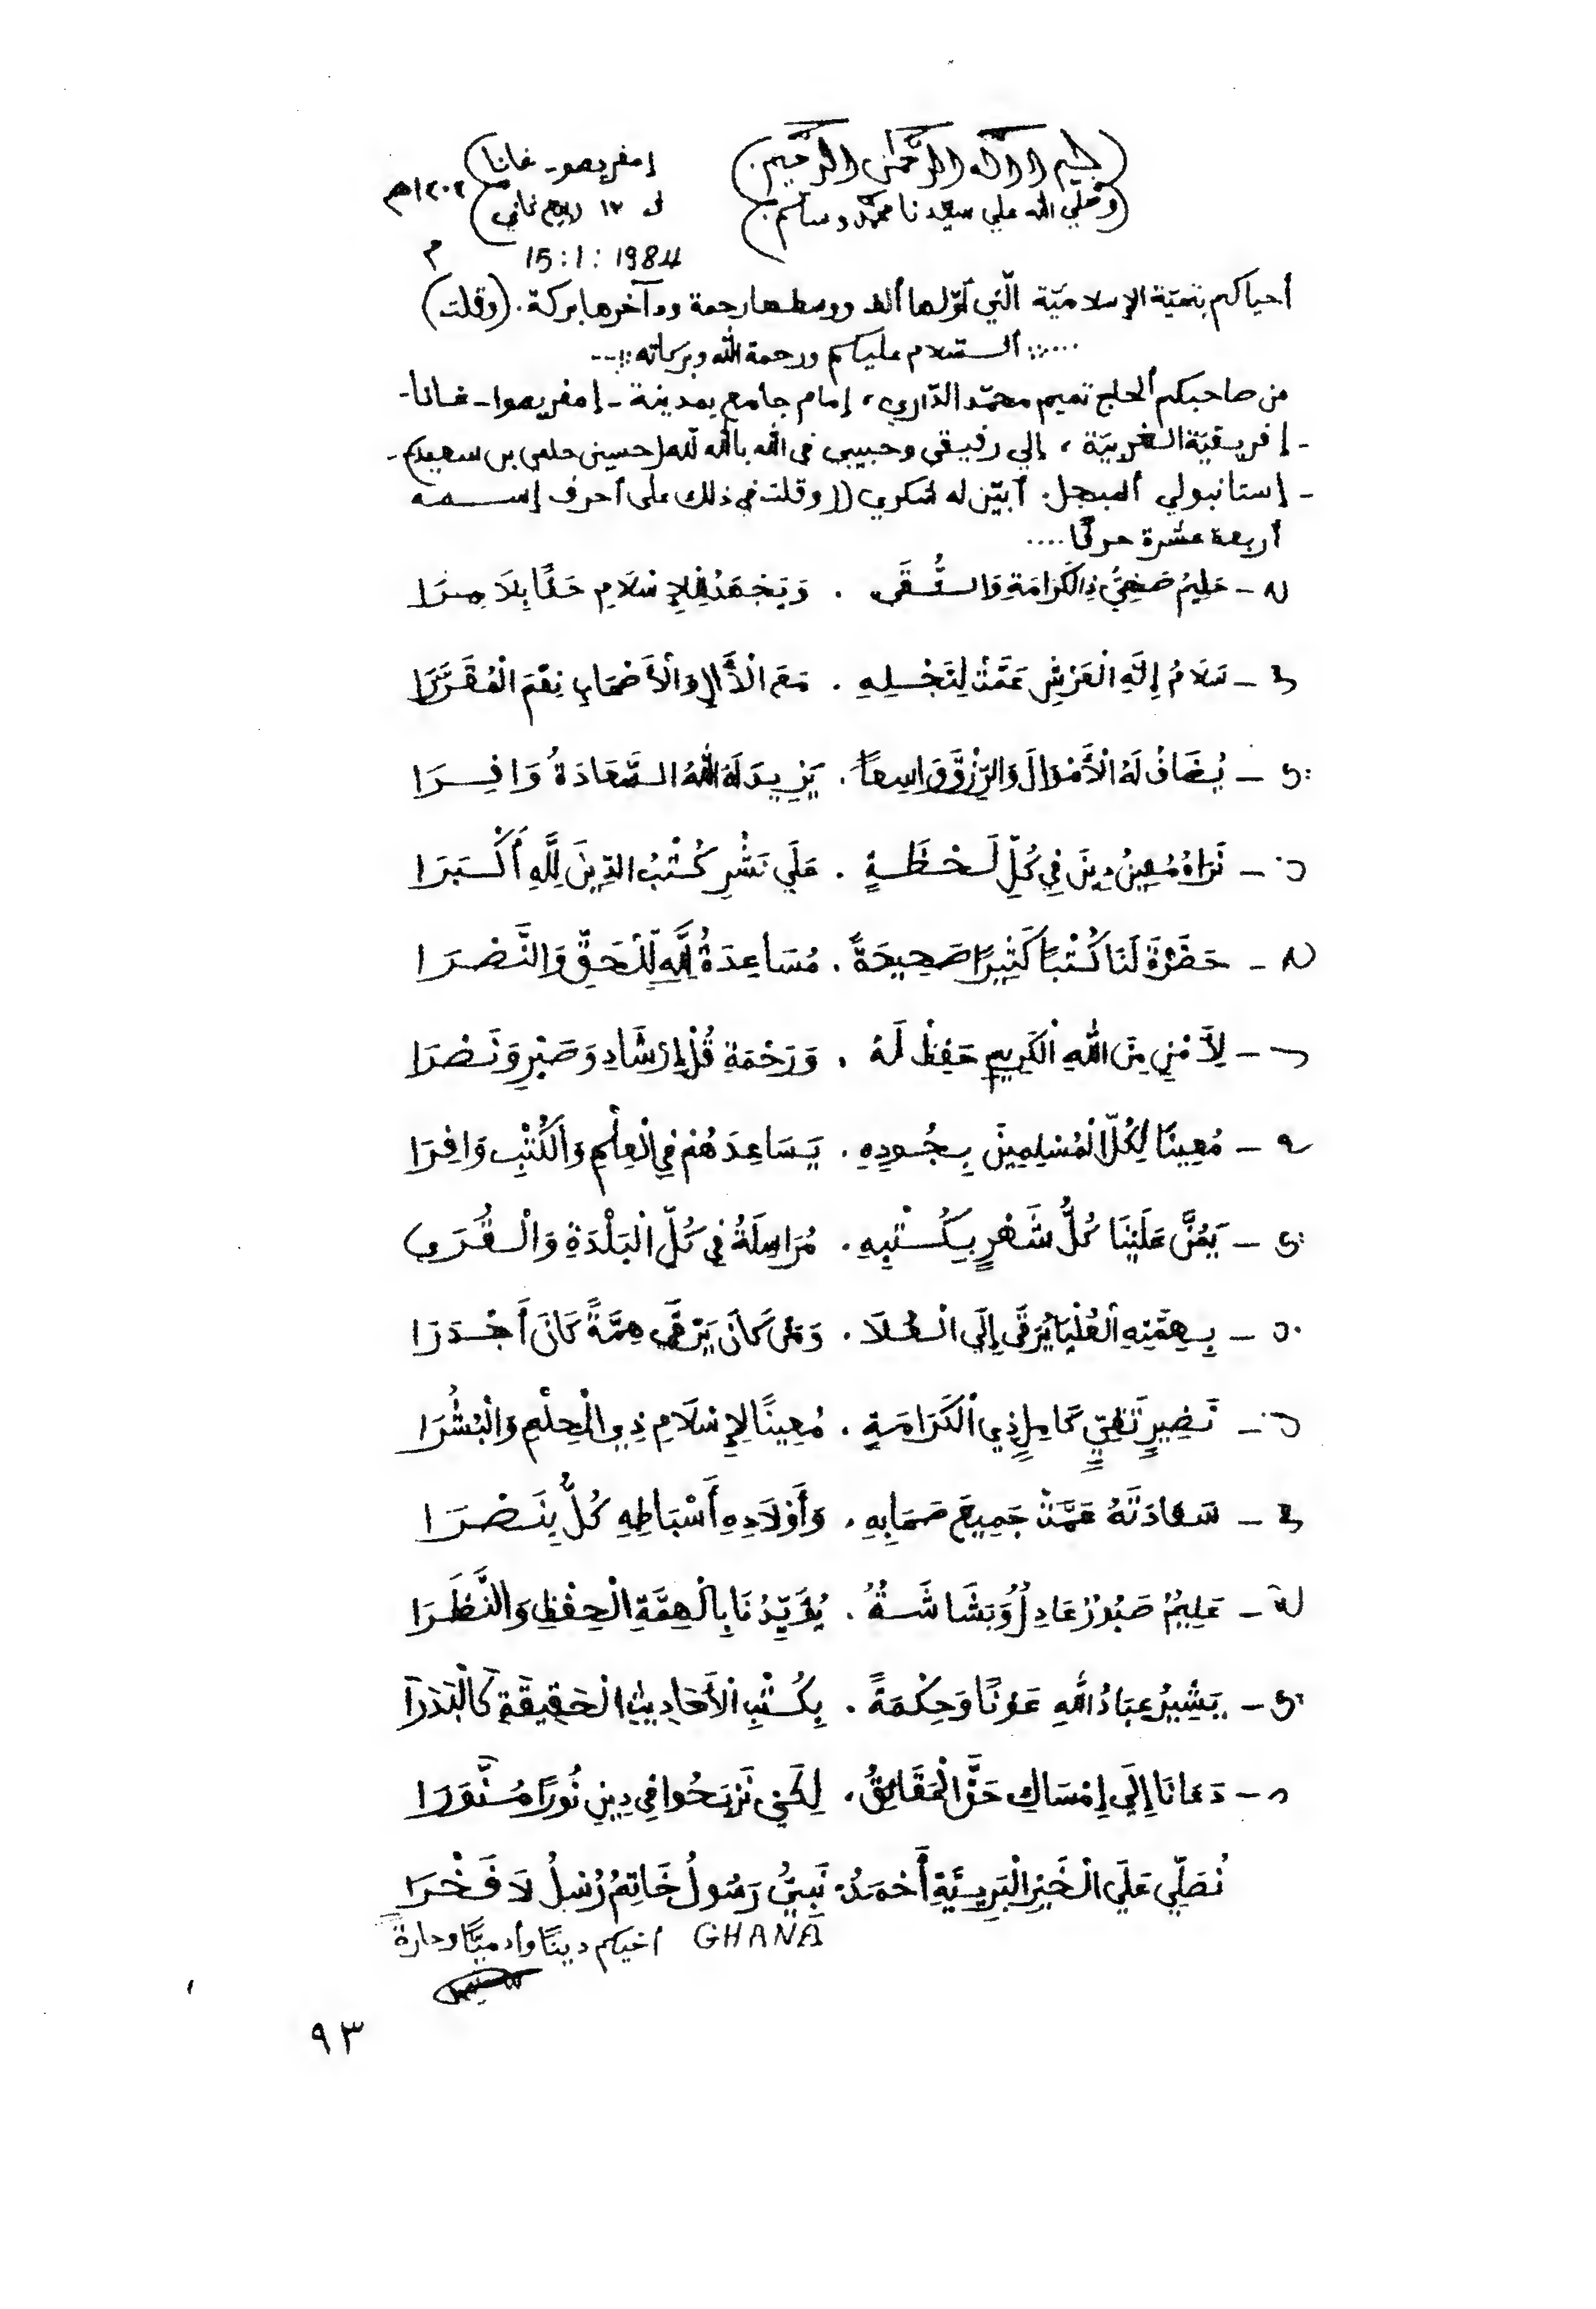 (بسم الله الرحمن الرحيم)
(وصلي الله علي سيدنا محمد وسلم)
إمفريصو - غانا
١٢ ربيع ثاني
15:1:1984 م
أحياكم بتحيّة الإسلاميّة الّتي أوّلها ألف ووسطها رحمة وآخرها بركة. (وقلت)
ألسّلام عليكم ورحمة الله وبركاته
من صاحبكم ألحاج تميم محمّد الدّاري، إمام جامع بمدينة - إمفريصوا - غانا -
- إفريقيّة الغربيّة، إلي رفيقي وحبيبي في الله بالله لله (حسين حلمي بن سعيد) -
- إستانبولي ألمبجل. أبيّن له شكري ((وقلت في ذلك على أحرف إسمه
أربعة عشرة حرفًا ....
ح - حَلِيمُ صَخِيُّ ذِالْكَرَامَةِ وَالتُّقَى . وَيَجْهَدُ لِلإِسْلَامِ حَقًا بِلَا مِرَا
س - سَلَامُ إِلَهِ الْعَرْشِ عَمَّتْ لِنَجْلِهِ . مَعَ الْأَالِ وَالْأَصْحَابِ نِعْمَ الْمُقَرَّرَا
ي - يُضَافْ لَهُ الْأَمْوَالَ وَالرِّزْقَ وَاسِعاً . يَزِيدَ لَهُ اللهُ السَّعَادَةُ وَافِرَا
ن - نَرَاهُ مُعِينُ دِينَ فِي كُلِّ لَحْظَةٍ . عَلَي نَشْرِ كُتْبُ الدِّينَ لِلَّهِ أَكْبَرَا
ح - حَضَرْةَ لَنَا كُتْبًا كَثِيرًا صَحِيحَةً . مُسَاعِدَةُ لِلَّهِ لِلْحَقِّ وَالنَّصْرَا
ل - لِأَمْنِي مِنَ اللهِ الْكَرِيمِ حَفِظْ لَهُ . وَرَحْمَةِ قُلْ إِرْشَادِ وَصَبْرِ وَنَصْرَا
م - مُعِينًا لِكُلِّ الْمُسْلِمِينَ بِجُودِهِ . يَسَاعِدَهُمْ فِي الْعِلْمِ وَالْكُتْبِ وَافِرَا
ي - يَمُنَّ عَلَيْنَا كُلُّ شَهْرٍ بِكُتْبِهِ . مُرَاسِلَةُ فِي كُلِّ الْبَلْدَةِ وَالْقُرَي
ب - بِهِمَّتِهِ الْعُلْيَا يُرَقَّى إِلَى الْعُلَا . وَمَن كَانَ يَرْقَى هِمَّةً كَانَ أَجْدَرَا
ن - نَصِيرٍ تَقِيٍّ كَامِلٍ ذِي الْكَرَامَةِ . مُعِينًا لِإِسْلَامِ ذِي الْحِلْمِ وَالْبُشْرَا
س - سَعَادَتَهُ عَمَّتْ جَمِيعَ صَحَابِهِ . وَأَوْلَادِهِ أَسْبَاطِهِ كُلُّ بِنَصْرَا
ع - عَلِيمُ صَبُورُ عَادِلُ وَبَشَاشَةُ . يُؤَيِّدُنَا بِالْهِمَّةِ الْحِفْظِ وَالنَّظَرَا
ي - يَشِيرُ عِبَادُ اللهِ عَوْنًا وَحِكْمَةً . بِكُتْبِ الْأَحَادِيثِ الْحَقِيقَةِ كَالْبَدْرَا
د - دَعَانَا إِلَي إِمْسَاكِ حَقَّ الْحَقَائِقُ . لِكَي نَرْبَحُوا فِي دِينِ نُورًا مُنَّوَرَا
نُصَلِّي عَلَي الْخَيْرِ الْبَرِيئَةِ أَحْمَدُ نَبِيُّ رَسُولُ خَاتِمُ رُسْلُ لَا فَخْرَا
GHANA أخيكم دينًا وأدميًّا وحارة
٩٣